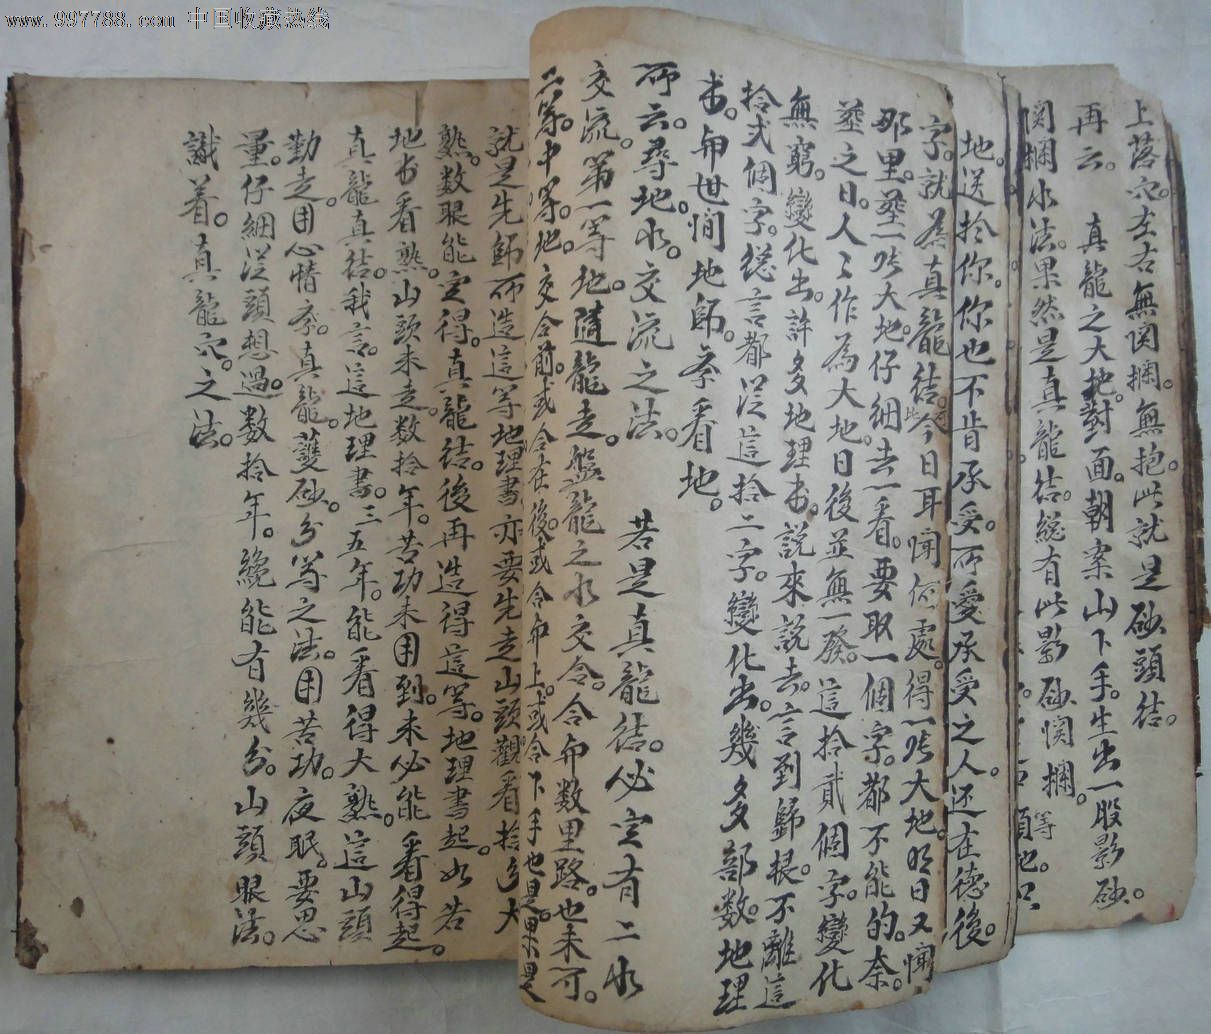 www.997788.com 中国收藏热线
上落穴。左右無関攔。無抱。此就是砂頭结。
再云。 真龍之大地。對面。朝案山下手。生出一股影砂。
関攔水法。果然是真龍结。縂有此影砂関攔。等
地。送拾你。你也不肯承受。而爱承受之人。还在德後。
字。就為真龍结。此今日耳闻何處。得一所大地。明日又闻
那里。塟一所大地。仔细去一看。要取一個字。都不能的。奈
塟之日。人人作為大地。日後並無一發。這拾貳個字。變化
無窮。變化出。許多地理书。說來說去。言到歸根。不離這
拾弍個字。縂言都从這拾二字。變化出。幾多部数。地理
书。与世间地师。参看地。
而云。尋地水。交流之法。 若是真龍结。必定有二水
交流。第一等地。隨龍走。盤龍之水交合。合与数里路。也未可。
二等。中等。地。交合前。或合在後。或合与上。或合下手也是。果是
就是先師而造這等地理書亦要先走山頭觀看拾多大
熟。数眼能定得。真龍结。後再造得這等。地理書起。如若
地书看熟。山頭未走。数拾年。苦功未用到。未必能看得起。
真龍真结。我言。這地理書。三五年。能看得大熟。這山頭
勤走。用心情参。真龍。雙砂。分等之法。用苦功。夜眠。要思
量。仔細从頭想過。数拾年。纔能有幾分。山頭眼法。
識着。真龍穴。之法。